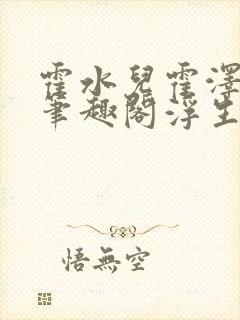 霍水兒霍澤
筆趣閣浮生
悟無空